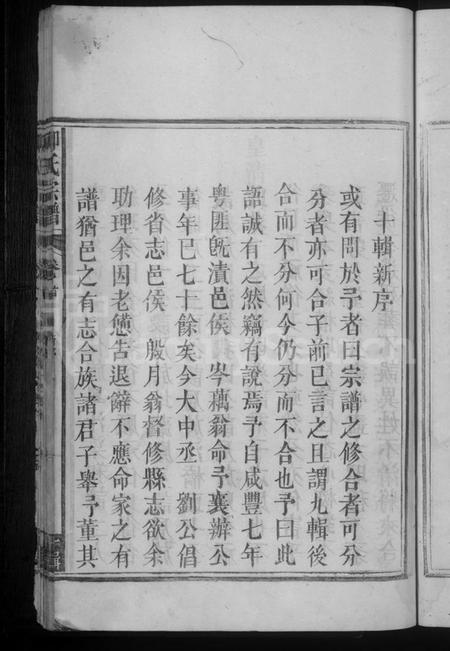 十輯新序
或有問於予者曰宗譜之修合者可分
分者亦可合子前已言之且謂九輯後
合而不分何今仍分而不合也予曰此
語誠有之然竊有說焉予自咸豐七年
粵匪旣潰邑侯 岑藕翁命予襄辦公
事年巳七十餘矣今大中丞 劉公倡
修省志邑侯 殷月翁督修縣志欲余
助理余因老憊告退辭不應命家之有
譜猶邑之有志合族諸君子舉予董其
柳氏宗譜
卷首